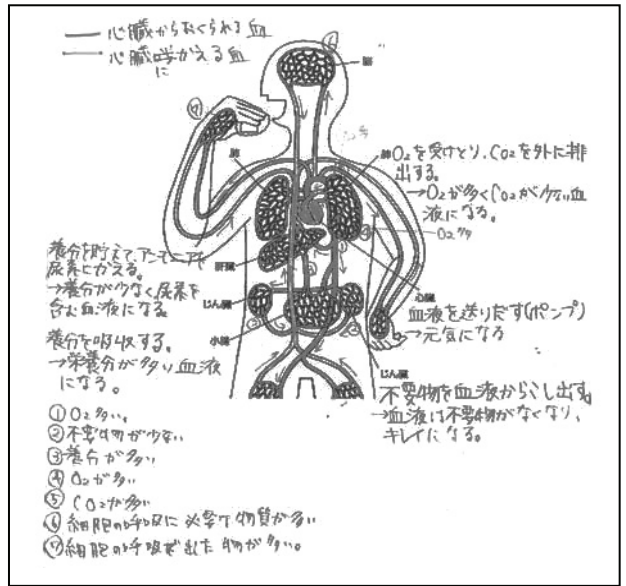 心臓からおくられる血
心臓にかえる血
脳
肺
肺
O₂を受けとり、CO₂を外に排
出する。
→O₂が多くCO₂が少ない血
液になる。
O₂多
養分を貯えて、アンモニアを
尿素にかえる。
→養分が少なく尿素を
含む血液になる。
肝臓
心臓
血液を送りだす(ポンプ)
→元気になる
じん臓
小腸
養分を吸収する。
→栄養分が多い血液
になる。
じん臓
不要物を血液からこし出す。
→血液は不要物がなくなり、
キレイになる。
①O₂多い。
②不要物が少ない
③養分が多い
④O₂が多い
⑤CO₂が多い
⑥細胞の呼吸に必要な物質が多い
⑦細胞の呼吸で出た物が多い。